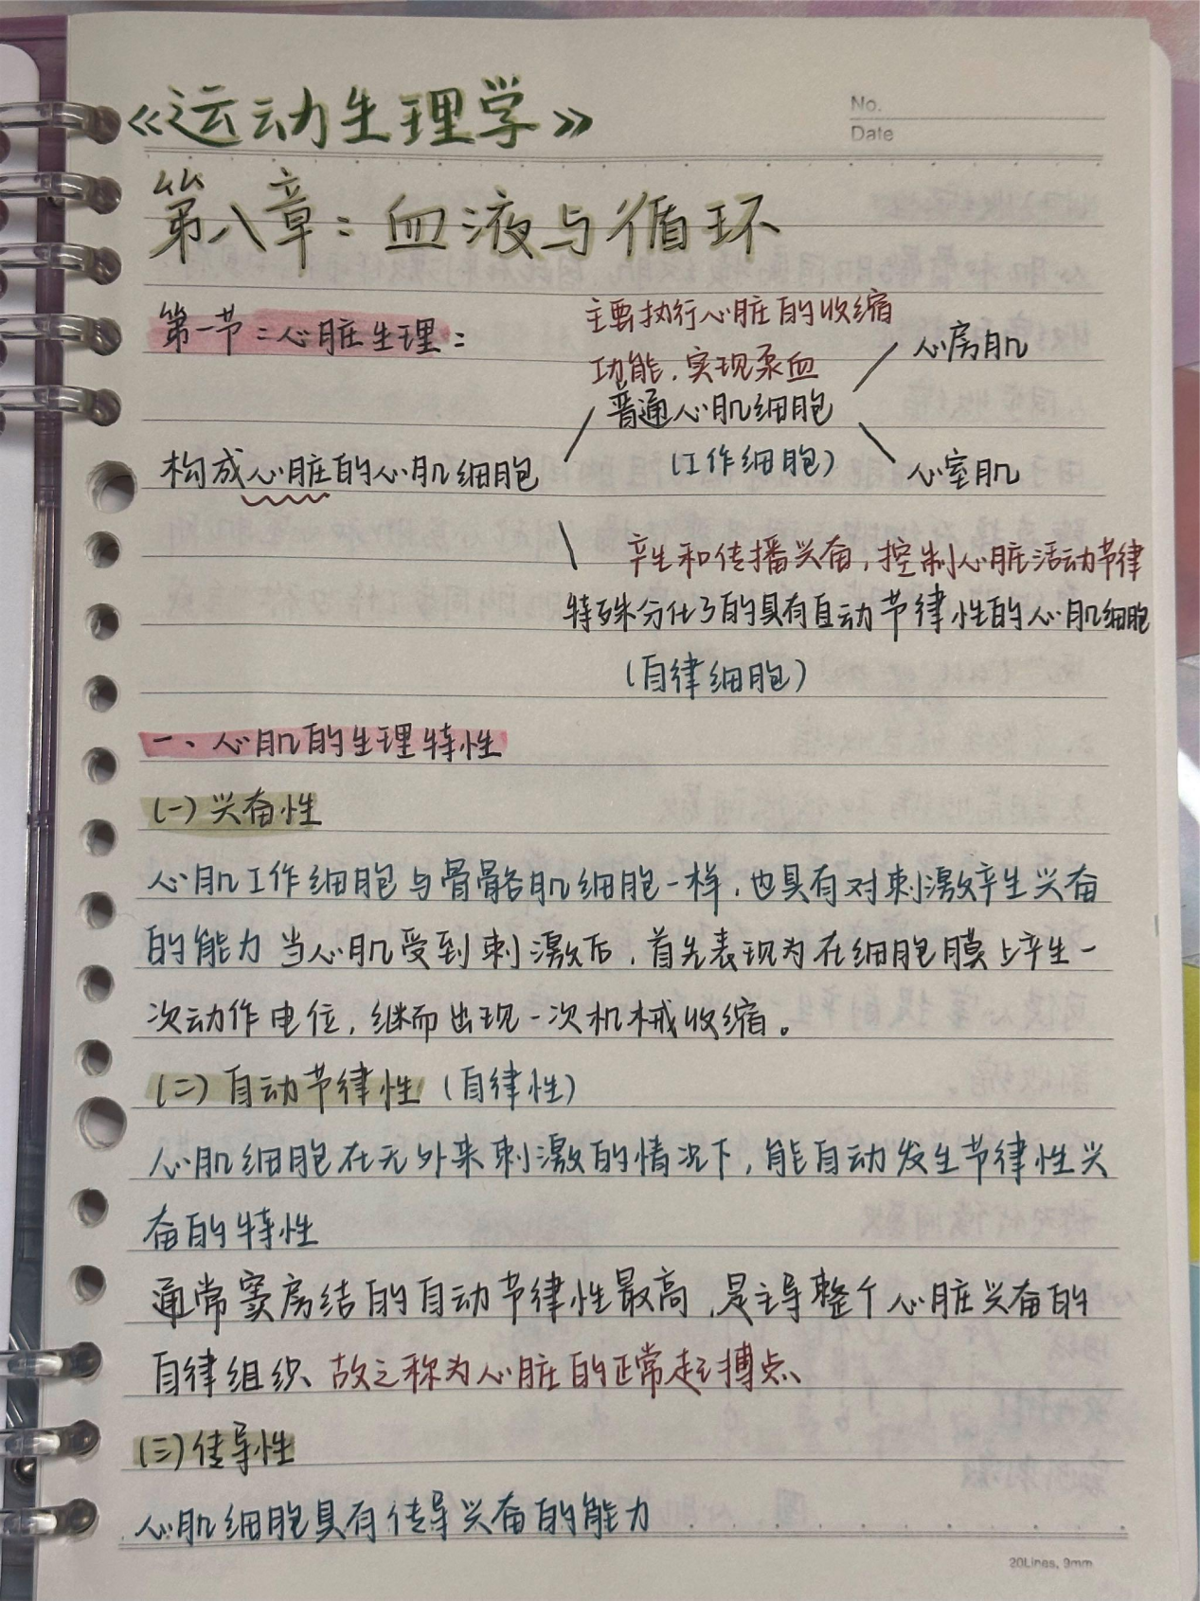 《运动生理学》
No.
Date
第八章：血液与循环
第一节：心脏生理：
主要执行心脏的收缩
功能，实现泵血
心房肌
普通心肌细胞
（工作细胞）
心室肌
构成心脏的心肌细胞
产生和传播兴奋，控制心脏活动节律
特殊分化了的具有自动节律性的心肌细胞
（自律细胞）
一、心肌的生理特性
（一）兴奋性
心肌工作细胞与骨骼肌细胞一样，也具有对刺激产生兴奋
的能力 当心肌受到刺激后，首先表现为在细胞膜上产生一
次动作电位，继而出现一次机械收缩。
（二）自动节律性（自律性）
心肌细胞在无外来刺激的情况下，能自动发生节律性兴
奋的特性
通常窦房结的自动节律性最高，是主导整个心脏兴奋的
自律组织 故之称为心脏的正常起搏点、
（三）传导性
心肌细胞具有传导兴奋的能力
20Lines, 9mm